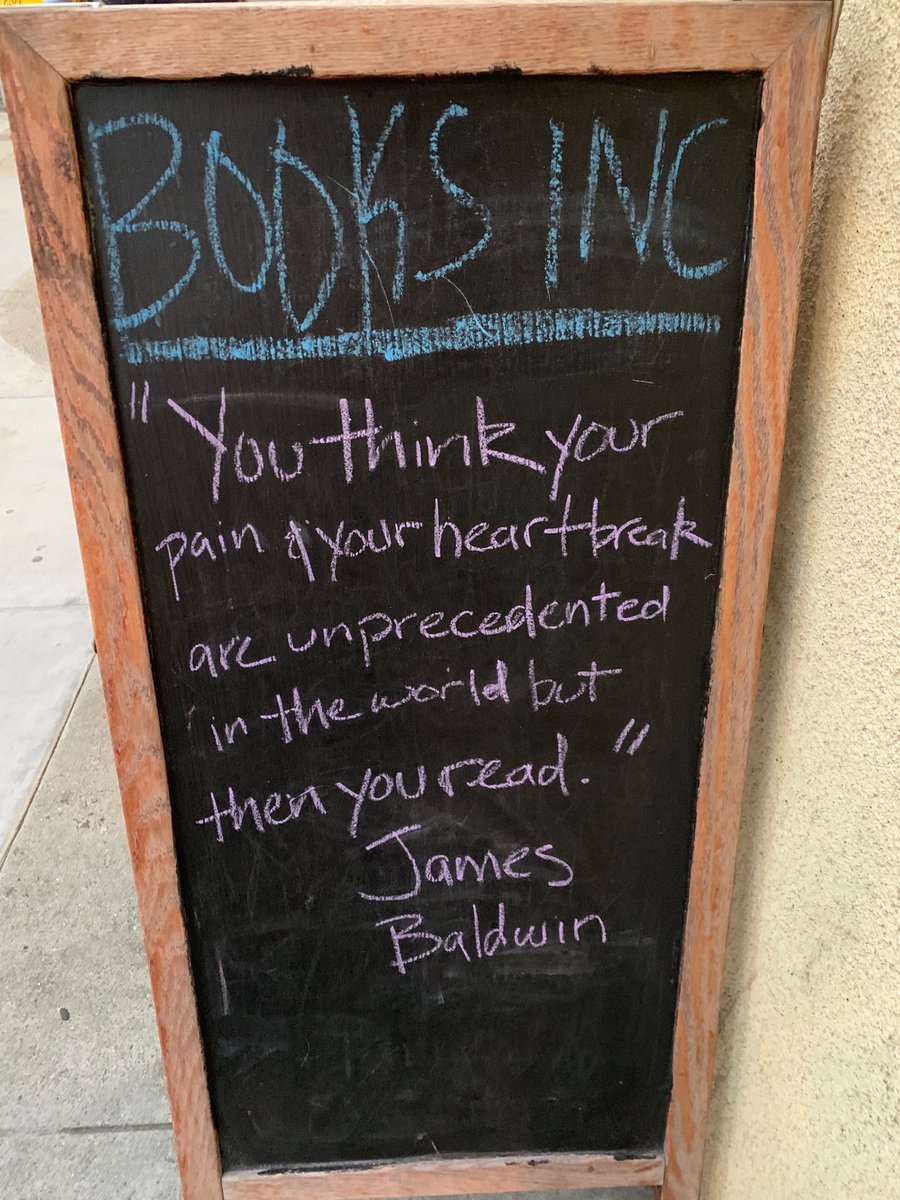 BOOKS INC
"You think your
pain & your heartbreak
are unprecedented
in the world but
then you read."
James
Baldwin